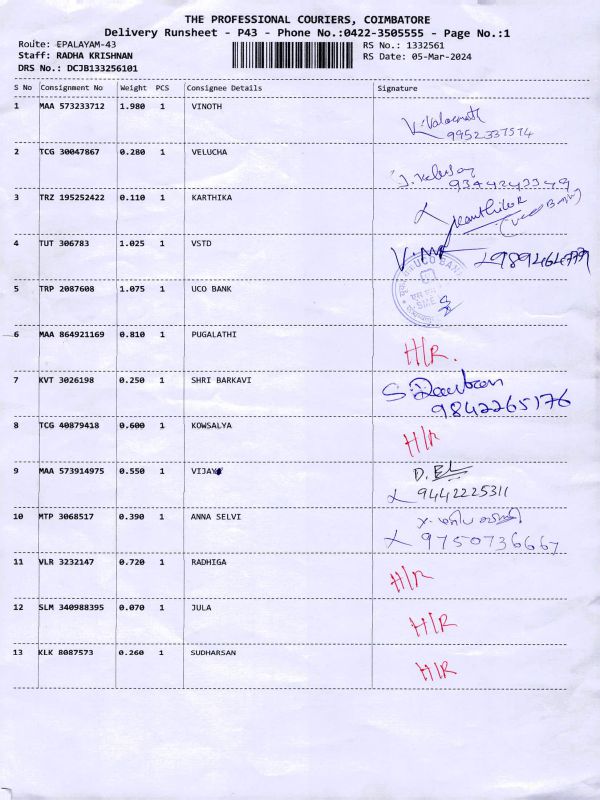 THE PROFESSIONAL COURIERS, COIMBATORE
Delivery Runsheet - P43 - Phone No.:0422-3505555 - Page No.:1
Route: EPALAYAM-43 RS No.: 1332561
Staff: RADHA KRISHNAN RS Date: 05-Mar-2024
DRS No.: DCJB133256101
S No Consignment No Weight PCS Consignee Details Signature
1 MAA 573233712 1.980 1 VINOTH
9952337574
2 TCG 30047867 0.280 1 VELUCHA
9344243349
3 TRZ 195252422 0.110 1 KARTHIKA
4 TUT 306783 1.025 1 VSTD
5 TRP 2087608 1.075 1 UCO BANK
UCO BANK
6 MAA 864921169 0.810 1 PUGALATHI H/R.
7 KVT 3026198 0.250 1 SHRI BARKAVI
9842265176
8 TCG 40879418 0.600 1 KOWSALYA H/R
9 MAA 573914975 0.550 1 VIJAY
9442225311
10 MTP 3068517 0.390 1 ANNA SELVI
9750736667
11 VLR 3232147 0.720 1 RADHIGA H/R
12 SLM 340988395 0.070 1 JULA H/R
13 KLK 8087573 0.260 1 SUDHARSAN H/R